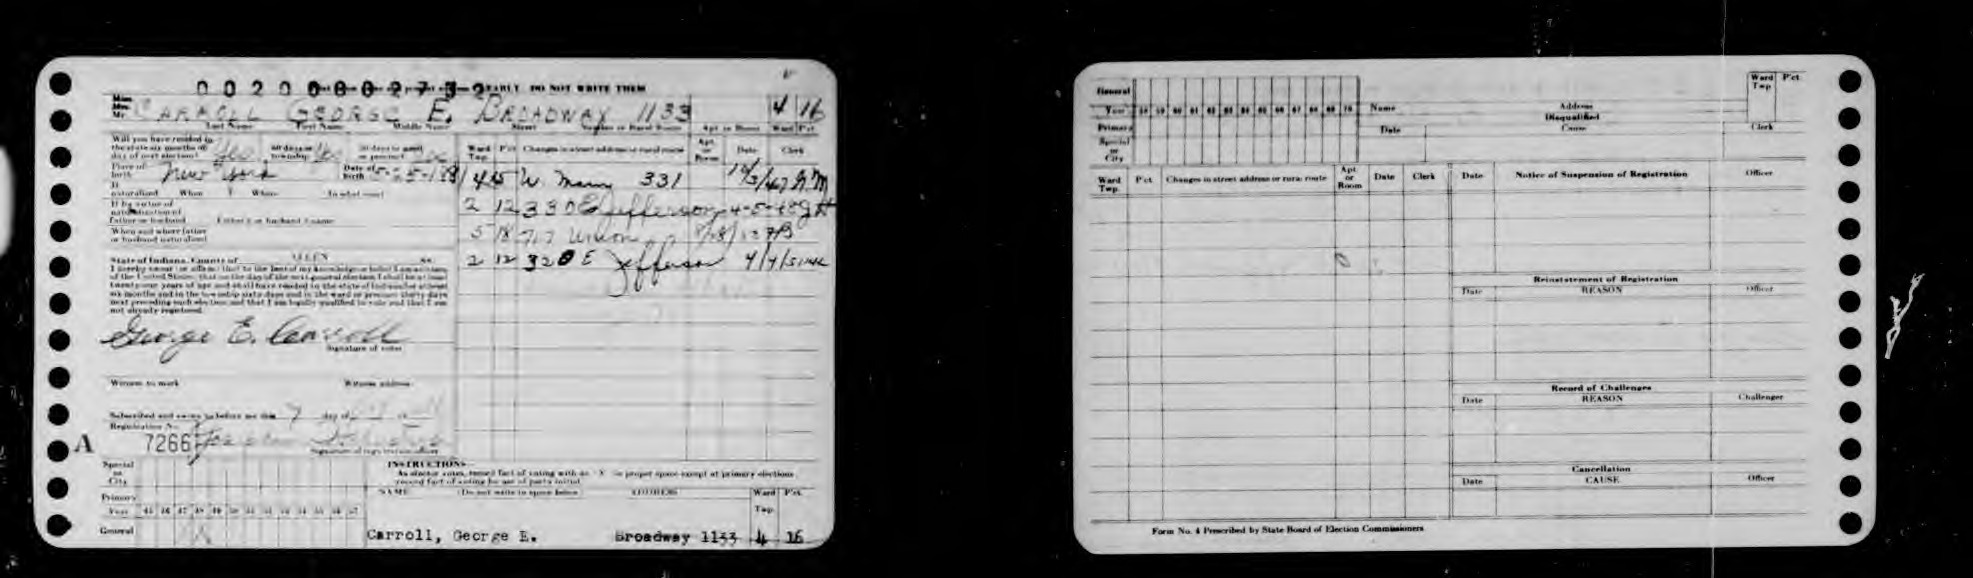 0020000273 2 EARLY. DO NOT WRITE THEM
Miss
Mrs.
Mr. CARROLL GEORGE E. BROADWAY 1133 4 16
Last Name First Name Middle Name Street Number or Rural Route Apt or Room Ward Pct
Will you have resided in
the state six months of Yes 60 days in township Yes 30 days in precinct
day of next election?
Place of birth New York Date of birth 5-25-
If naturalized When Where In what court
If by virtue of
naturalization of
father or husband Father's or husband's name
When and where father
or husband naturalized
Ward Twp. P'ct Changes in street address or rural route Apt. or Room Date Clerk
4 5 W. Main 331
2 12 330 E Jefferson 4-5-48
5 18 717 Union
2 12 320 E Jefferson 4/4/51
State of Indiana, County of ALLEN ss:
I hereby swear (or affirm) that to the best of my knowledge or belief I am a citizen
of the United States; that on the day of the next general election I shall be at least
twenty-one years of age and shall have resided in the state of Indiana for at least
six months and in the township sixty days and in the ward or precinct thirty days
next preceding such election; and that I am legally qualified to vote and that I am
not already registered.
George E. Carroll
Signature of voter
Witness to mark Witness address
Subscribed and sworn to before me this 7 day of
Registration No.
A 7266
Signature of registration officer
Special or City
Primary
Year 45 46 47 48 49 50 51 52 53 54 55 56 57
General
INSTRUCTIONS
As elector votes, record fact of voting with an "X" in proper space except at primary elections
record fact of voting by use of party initial.
NAME (Do not write in space below) ADDRESS Ward Twp. P'ct.
Carroll, George E. Broadway 1133 4 16
General
Year 58 59 60 61 62 63 64 65 66 67 68 69 70 Name Address Ward Twp P'ct
Primary
Special or City
Disqualified
Date Cause Clerk
Ward Twp. P'ct Changes in street address or rural route Apt. or Room Date Clerk
Date Notice of Suspension of Registration Officer
Reinstatement of Registration
Date REASON Officer
Record of Challenges
Date REASON Challenger
Cancellation
Date CAUSE Officer
Form No. 4 Prescribed by State Board of Election Commissioners